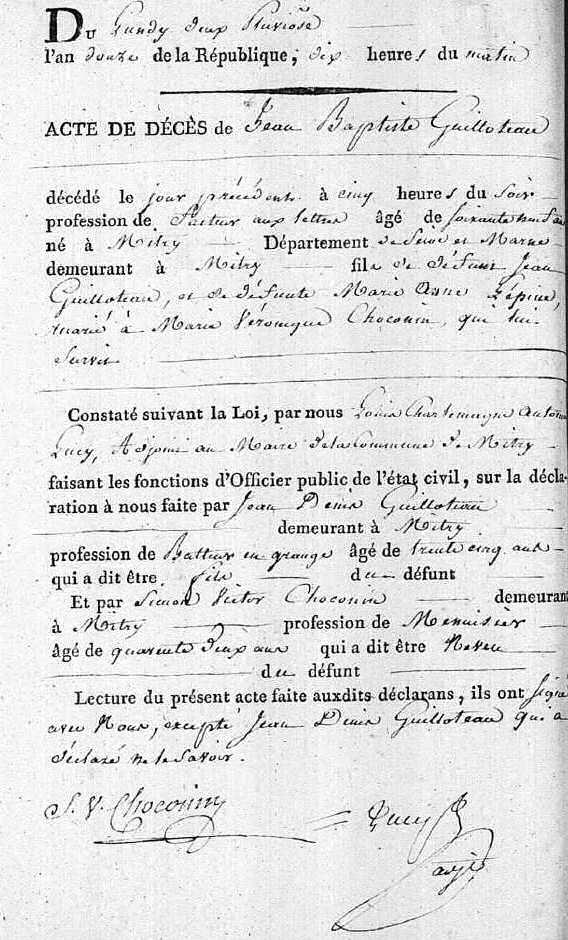 Du Lundy deux Pluviose
l'an douze de la République; dix heures du matin
ACTE DE DÉCÈS de Jean Baptiste Guilloteau
décédé le jour précédent à cinq heures du Soir
profession de facteur aux lettres âgé de soixante
né à Mitry Département de Seine et Marne
demeurant à Mitry fils de défunt Jean
Guilloteau, et de défunte Marie Anne Lépine,
marié à Marie Véronique Choconin, qui lui
Survit
Constaté suivant la Loi, par nous Louis Charlemagne Antoine
Lucy, Adjoint au Maire de la Commune de Mitry
faisant les fonctions d'Officier public de l'état civil, sur la décla-
ration à nous faite par Jean Denis Guilloteau
demeurant à Mitry
profession de Batteur en grange âgé de trente cinq ans
qui a dit être fils du défunt
Et par Simon Victor Choconin demeurant
à Mitry profession de Menuisier
âgé de quarente deux ans qui a dit être Neveu
du défunt
Lecture du présent acte faite auxdits déclarans, ils ont signé
avec Nous, excepté Jean Denis Guilloteau qui a
déclaré ne le savoir.
S. V. Choconin
Lucy
adjt